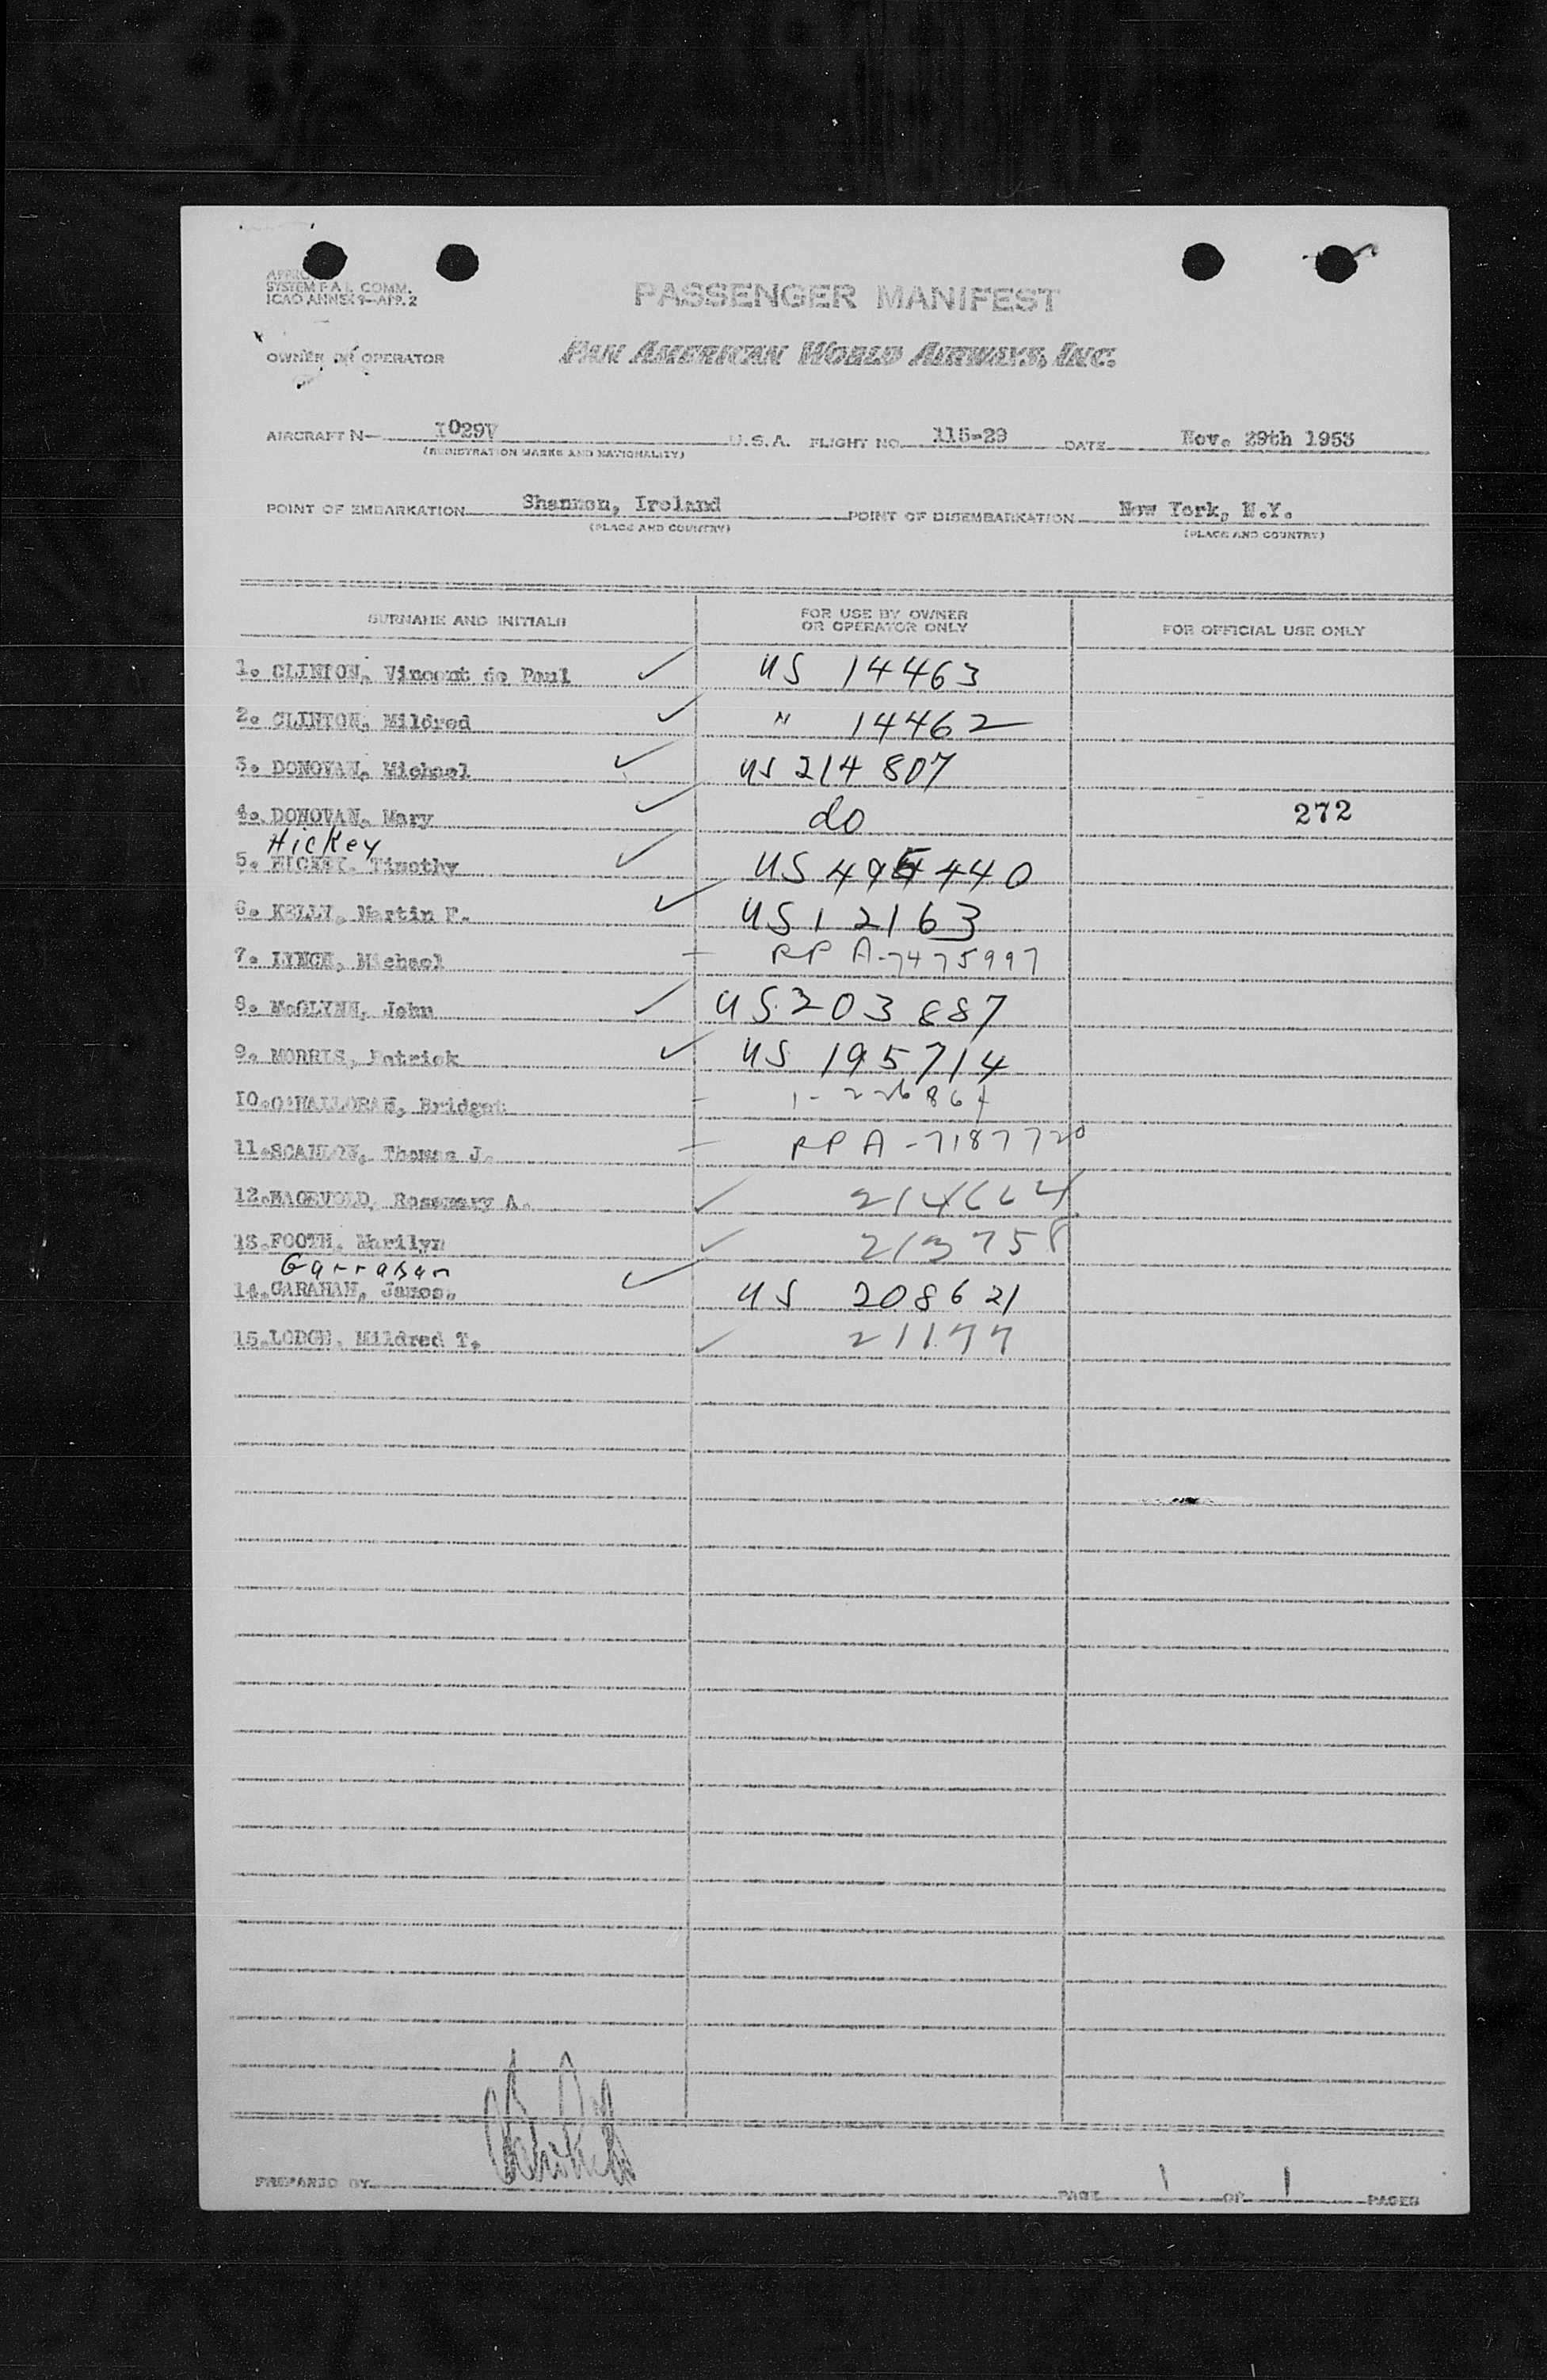 APPRO
SYSTEM F A L COMM.
ICAO ANNEX 9-APP. 2
PASSENGER MANIFEST
OWNER OR OPERATOR
PAN AMERICAN WORLD AIRWAYS, INC.
AIRCRAFT N- 1029V U.S.A. FLIGHT NO. 115-29 DATE Nov. 29th 1953
(REGISTRATION MARKS AND NATIONALITY)
POINT OF EMBARKATION Shannon, Ireland POINT OF DISEMBARKATION New York, N.Y.
(PLACE AND COUNTRY) (PLACE AND COUNTRY)
SURNAME AND INITIALS FOR USE BY OWNER OR OPERATOR ONLY FOR OFFICIAL USE ONLY
1. CLINTON, Vincent de Paul ✓ US 14463
2. CLINTON, Mildred ✓ " 14462
3. DONOVAN, Michael ✓ US 214807
4. DONOVAN, Mary ✓ do 272
Hickey
5. Timothy ✓ US 495440
6. KELLY, Martin F. ✓ US 12163
7. LYNCH, Michael - RP A-7475997
8. McGLYNN, John ✓ US 203887
9. MORRIS, Patrick ✓ US 195714
10. O'HALLORAN, Bridget -
11. SCANLON, Thomas J. - RP A-7187720
12. Rosemary A. ✓ 214664
13. FOOTH, Marilyn ✓ 213758
Garrahan
14. GARAHAN, James. ✓ US 208621
15. Mildred T. ✓ 21177
PREPARED BY PAGE 1 OF 1 PAGES